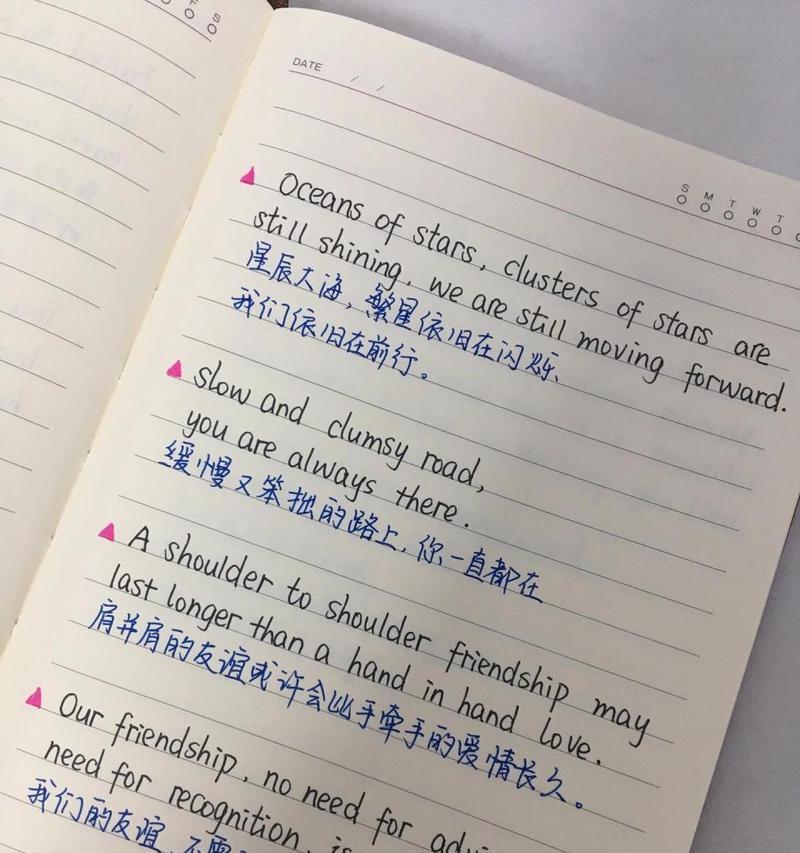 F S
DATE / /
S M T W T
Oceans of stars, clusters of stars are
still shining, we are still moving forward.
星辰大海，繁星依旧在闪烁、
我们依旧在前行。
slow and clumsy road,
you are always there.
缓慢又笨拙的路上，你一直都在
A shoulder to shoulder friendship may
last longer than a hand in hand love.
肩并肩的友谊或许会比手牵手的爱情长久。
Our friendship, no need for
need for recognition,
我们的友谊，不需